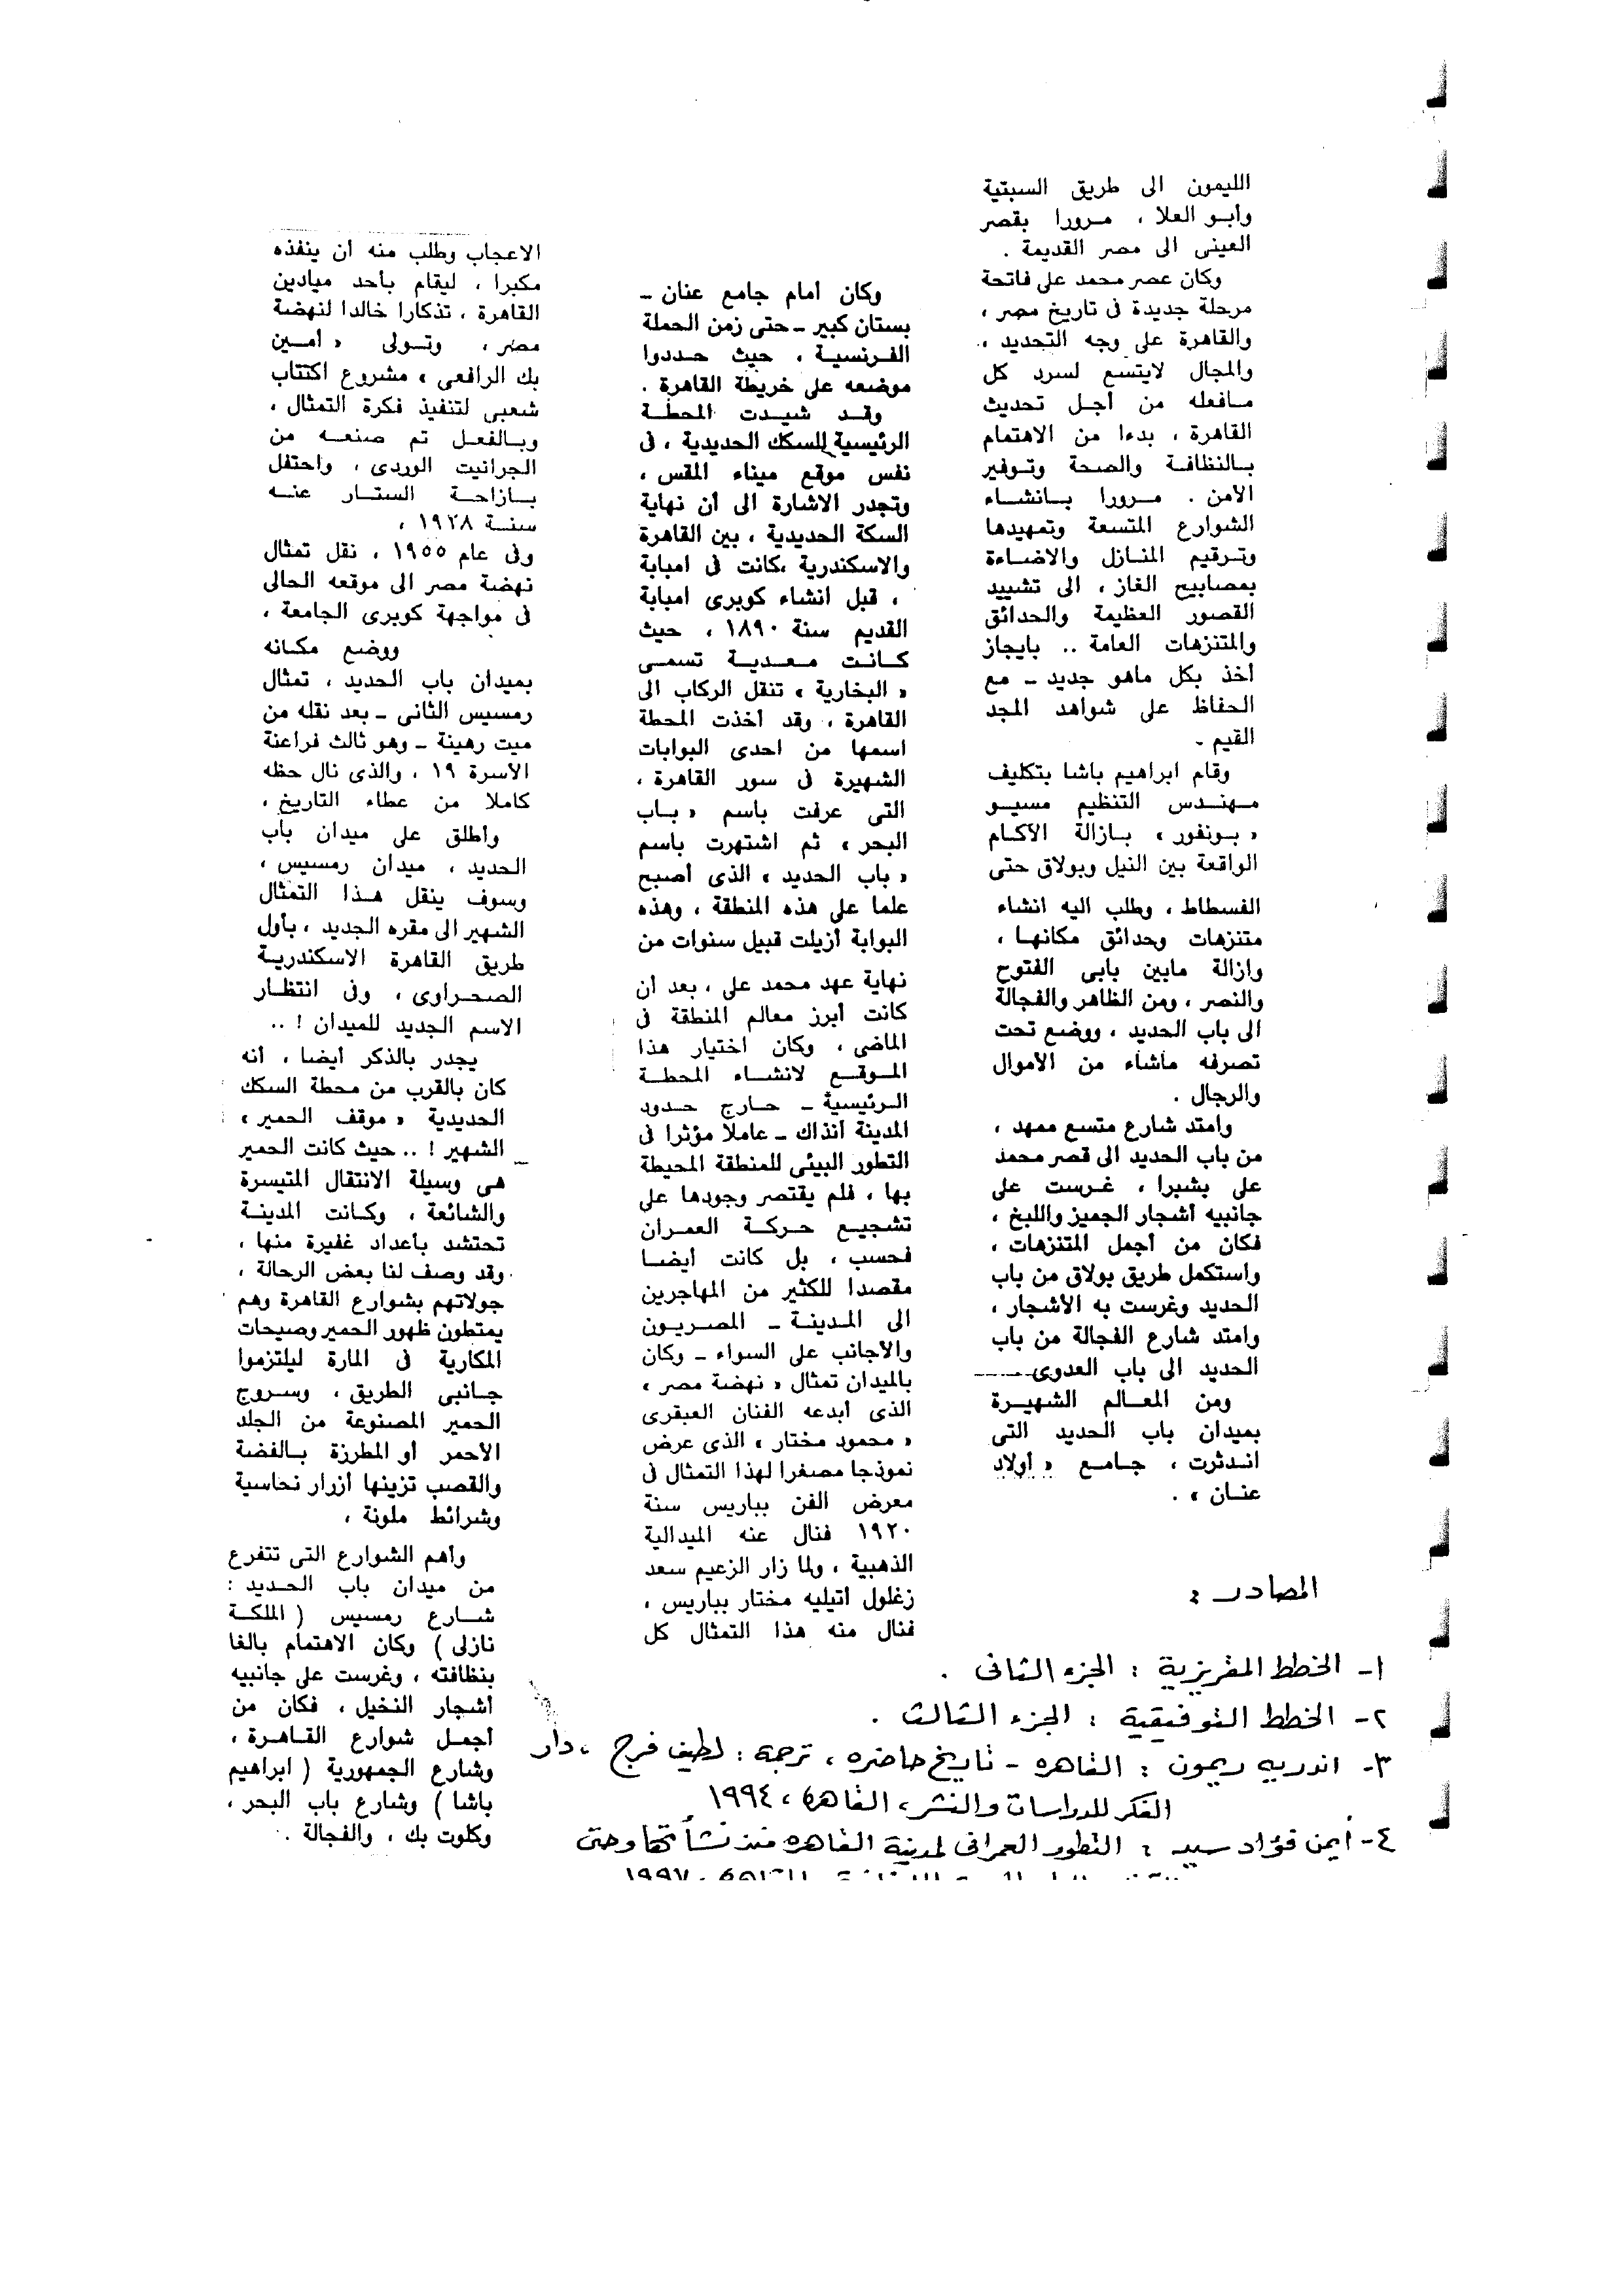 الليمون الى طريق السبتية
وأبو العلا ، مرورا بقصر
العينى الى مصر القديمة .
وكان عصر محمد على فاتحة
مرحلة جديدة فى تاريخ مصر ،
والقاهرة على وجه التحديد ،
والمجال لايتسع لسرد كل
مافعله من أجل تحديث
القاهرة ، بدءا من الاهتمام
بالنظافة والصحة وتوفير
الأمن . مرورا بانشاء
الشوارع المتسعة وتمهيدها
وترقيم المنازل والاضاءة
بمصابيح الغاز ، الى تشييد
القصور العظيمة والحدائق
والمتنزهات العامة .. بايجاز
أخذ بكل ماهو جديد - مع
الحفاظ على شواهد المجد
القيم -
وقام ابراهيم باشا بتكليف
مهندس التنظيم مسيو
« بونفور » بازالة الآكام
الواقعة بين النيل وبولاق حتى
الفسطاط ، وطلب اليه انشاء
متنزهات وحدائق مكانها ،
وازالة مابين بابى الفتوح
والنصر ، ومن الظاهر والفجالة
الى باب الحديد ، ووضع تحت
تصرفه ماشاء من الأموال
والرجال .
وامتد شارع متسع ممهد ،
من باب الحديد الى قصر محمد
على بشبرا ، غرست على
جانبيه أشجار الجميز واللبخ ،
فكان من أجمل المتنزهات ،
واستكمل طريق بولاق من باب
الحديد وغرست به الأشجار ،
وامتد شارع الفجالة من باب
الحديد الى باب العدوى
ومن المعالم الشهيرة
بميدان باب الحديد التى
اندثرت ، جامع « أولاد
عنان » .
وكان أمام جامع عنان -
بستان كبير - حتى زمن الحملة
الفرنسية ، حيث حددوا
موضعه على خريطة القاهرة .
وقد شيدت المحطة
الرئيسية للسكك الحديدية ، فى
نفس موقع ميناء المقس ،
وتجدر الاشارة الى أن نهاية
السكة الحديدية ، بين القاهرة
والاسكندرية ،كانت فى امبابة
، قبل انشاء كوبرى امبابة
القديم سنة ١٨٩٠ ، حيث
كانت معدية تسمى
« البخارية » تنقل الركاب الى
القاهرة ، وقد أخذت المحطة
اسمها من احدى البوابات
الشهيرة فى سور القاهرة ،
التى عرفت باسم « باب
البحر » ثم اشتهرت باسم
« باب الحديد » الذى أصبح
علما على هذه المنطقة ، وهذه
البوابة أزيلت قبيل سنوات من
نهاية عهد محمد على ، بعد أن
كانت أبرز معالم المنطقة فى
الماضى ، وكان اختيار هذا
الموقع لانشاء المحطة
الرئيسية - خارج حدود
المدينة آنذاك - عاملا مؤثرا فى
التطور البيئى للمنطقة المحيطة
بها ، فلم يقتصر وجودها على
تشجيع حركة العمران
فحسب ، بل كانت أيضا
مقصدا للكثير من المهاجرين
الى المدينة - المصريون
والأجانب على السواء - وكان
بالميدان تمثال « نهضة مصر »
الذى أبدعه الفنان العبقرى
« محمود مختار » الذى عرض
نموذجا مصغرا لهذا التمثال فى
معرض الفن بباريس سنة
١٩٢٠ فنال عنه الميدالية
الذهبية ، ولما زار الزعيم سعد
زغلول اتيليه مختار بباريس ،
فنال منه هذا التمثال كل
الاعجاب وطلب منه أن ينفذه
مكبرا ، ليقام بأحد ميادين
القاهرة ، تذكارا خالدا لنهضة
مصر ، وتولى « أمين
بك الرافعى » مشروع اكتتاب
شعبى لتنفيذ فكرة التمثال ،
وبالفعل تم صنعه من
الجرانيت الوردى ، واحتفل
بازاحة الستار عنه
سنة ١٩٢٨ ،
وفى عام ١٩٥٥ ، نقل تمثال
نهضة مصر الى موقعه الحالى
فى مواجهة كوبرى الجامعة ،
ووضع مكانه
بميدان باب الحديد ، تمثال
رمسيس الثانى - بعد نقله من
ميت رهينة - وهو ثالث فراعنة
الأسرة ١٩ ، والذى نال حظه
كاملا من عطاء التاريخ ،
وأطلق على ميدان باب
الحديد ، ميدان رمسيس ،
وسوف ينقل هذا التمثال
الشهير الى مقره الجديد ، بأول
طريق القاهرة الاسكندرية
الصحراوى ، وفى انتظار
الاسم الجديد للميدان ! ..
يجدر بالذكر أيضا ، أنه
كان بالقرب من محطة السكك
الحديدية « موقف الحمير »
الشهير ! .. حيث كانت الحمير
هى وسيلة الانتقال المتيسرة
والشائعة ، وكانت المدينة
تحتشد بأعداد غفيرة منها ،
وقد وصف لنا بعض الرحالة ،
جولاتهم بشوارع القاهرة وهم
يمتطون ظهور الحمير وصيحات
المكارية فى المارة ليلتزموا
جانبى الطريق ، وسروج
الحمير المصنوعة من الجلد
الأحمر أو المطرزة بالفضة
والقصب تزينها أزرار نحاسية
وشرائط ملونة ،
وأهم الشوارع التى تتفرع
من ميدان باب الحديد :
شارع رمسيس ( الملكة
نازلى ) وكان الاهتمام بالغا
بنظافته ، وغرست على جانبيه
أشجار النخيل ، فكان من
أجمل شوارع القاهرة ،
وشارع الجمهورية ( ابراهيم
باشا ) وشارع باب البحر ،
وكلوت بك ، والفجالة .
المصادر :
١- الخطط المقريزية : الجزء الثانى .
٢- الخطط التوفيقية : الجزء الثالث .
٣- اندريه ريمون : القاهره - تاريخ حاضره ، ترجمة : لطيف فرج ، دار
الفكر للدراسات والنشر ، القاهرة ، ١٩٩٤
٤- أيمن فؤاد سيد : التطور العمرانى لمدينة القاهره منذ نشأتها وحتى
١٩٩٧